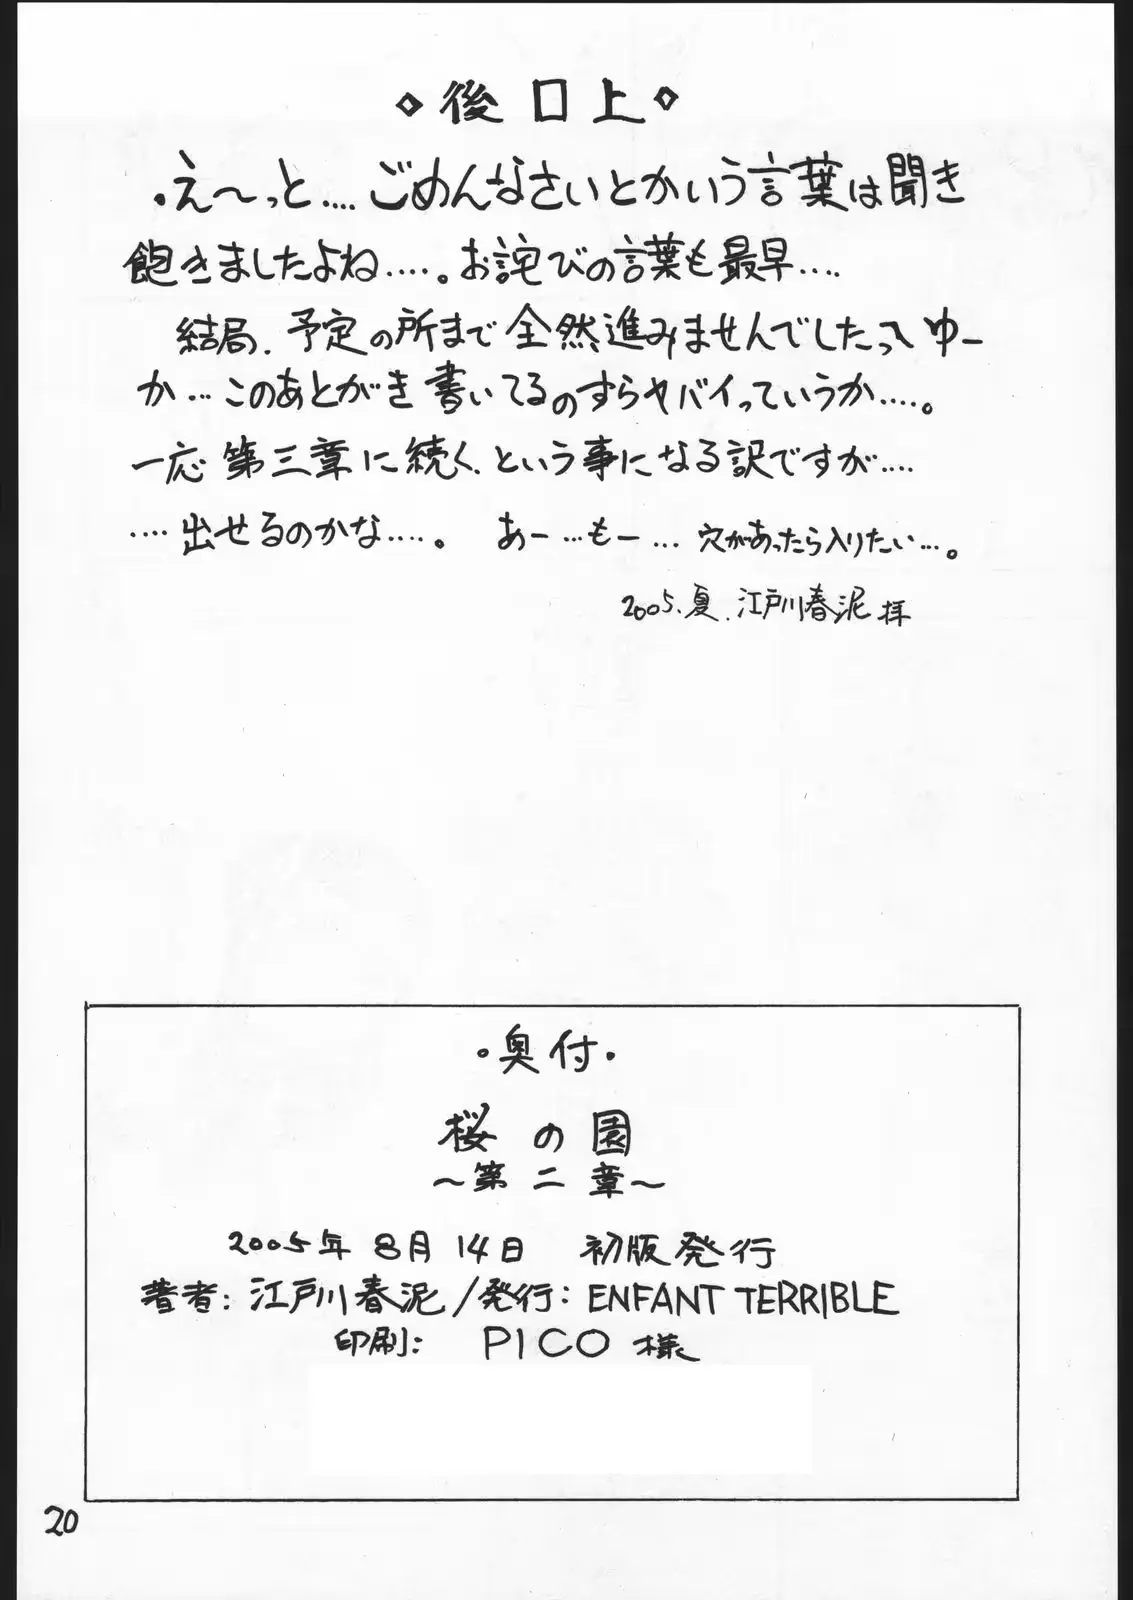 ◇後口上◇
・え〜っと....ごめんなさいとかいう言葉は聞き
飽きましたよね.....。お詫びの言葉も最早....
結局、予定の所まで全然進みませんでしたってゆー
か...このあとがき書いてるのすらヤバイっていうか....。
一応第三章に続く、という事になる訳ですが....
....出せるのかな....。 あー...もー... 穴があったら入りたい...。
2005.夏.江戸川春泥 拝
・奥付・
桜の園
〜第二章〜
2005年 8月14日 初版発行
著者:江戸川春泥/発行:ENFANT TERRIBLE
印刷: PICO 様
20